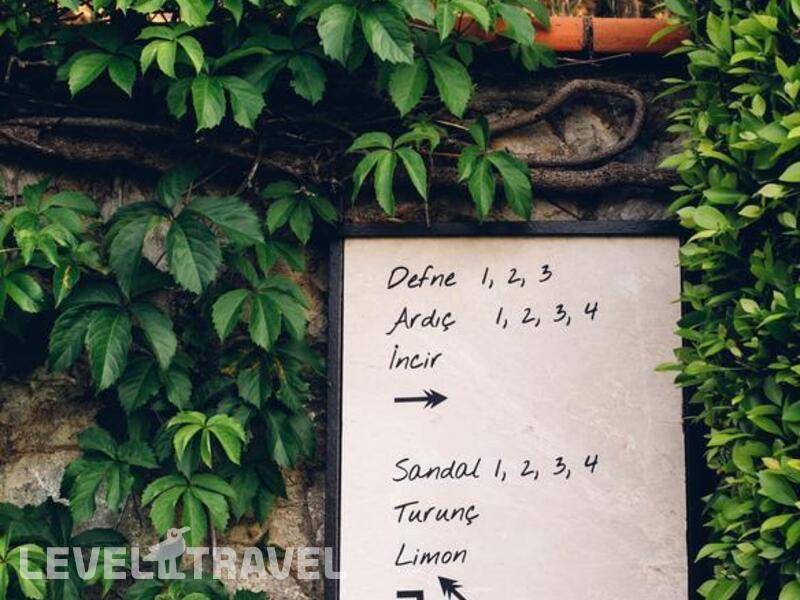 Defne 1, 2, 3
Ardıç 1, 2, 3, 4
İncir
Sandal 1, 2, 3, 4
Turunç
Limon
LEVEL.TRAVEL